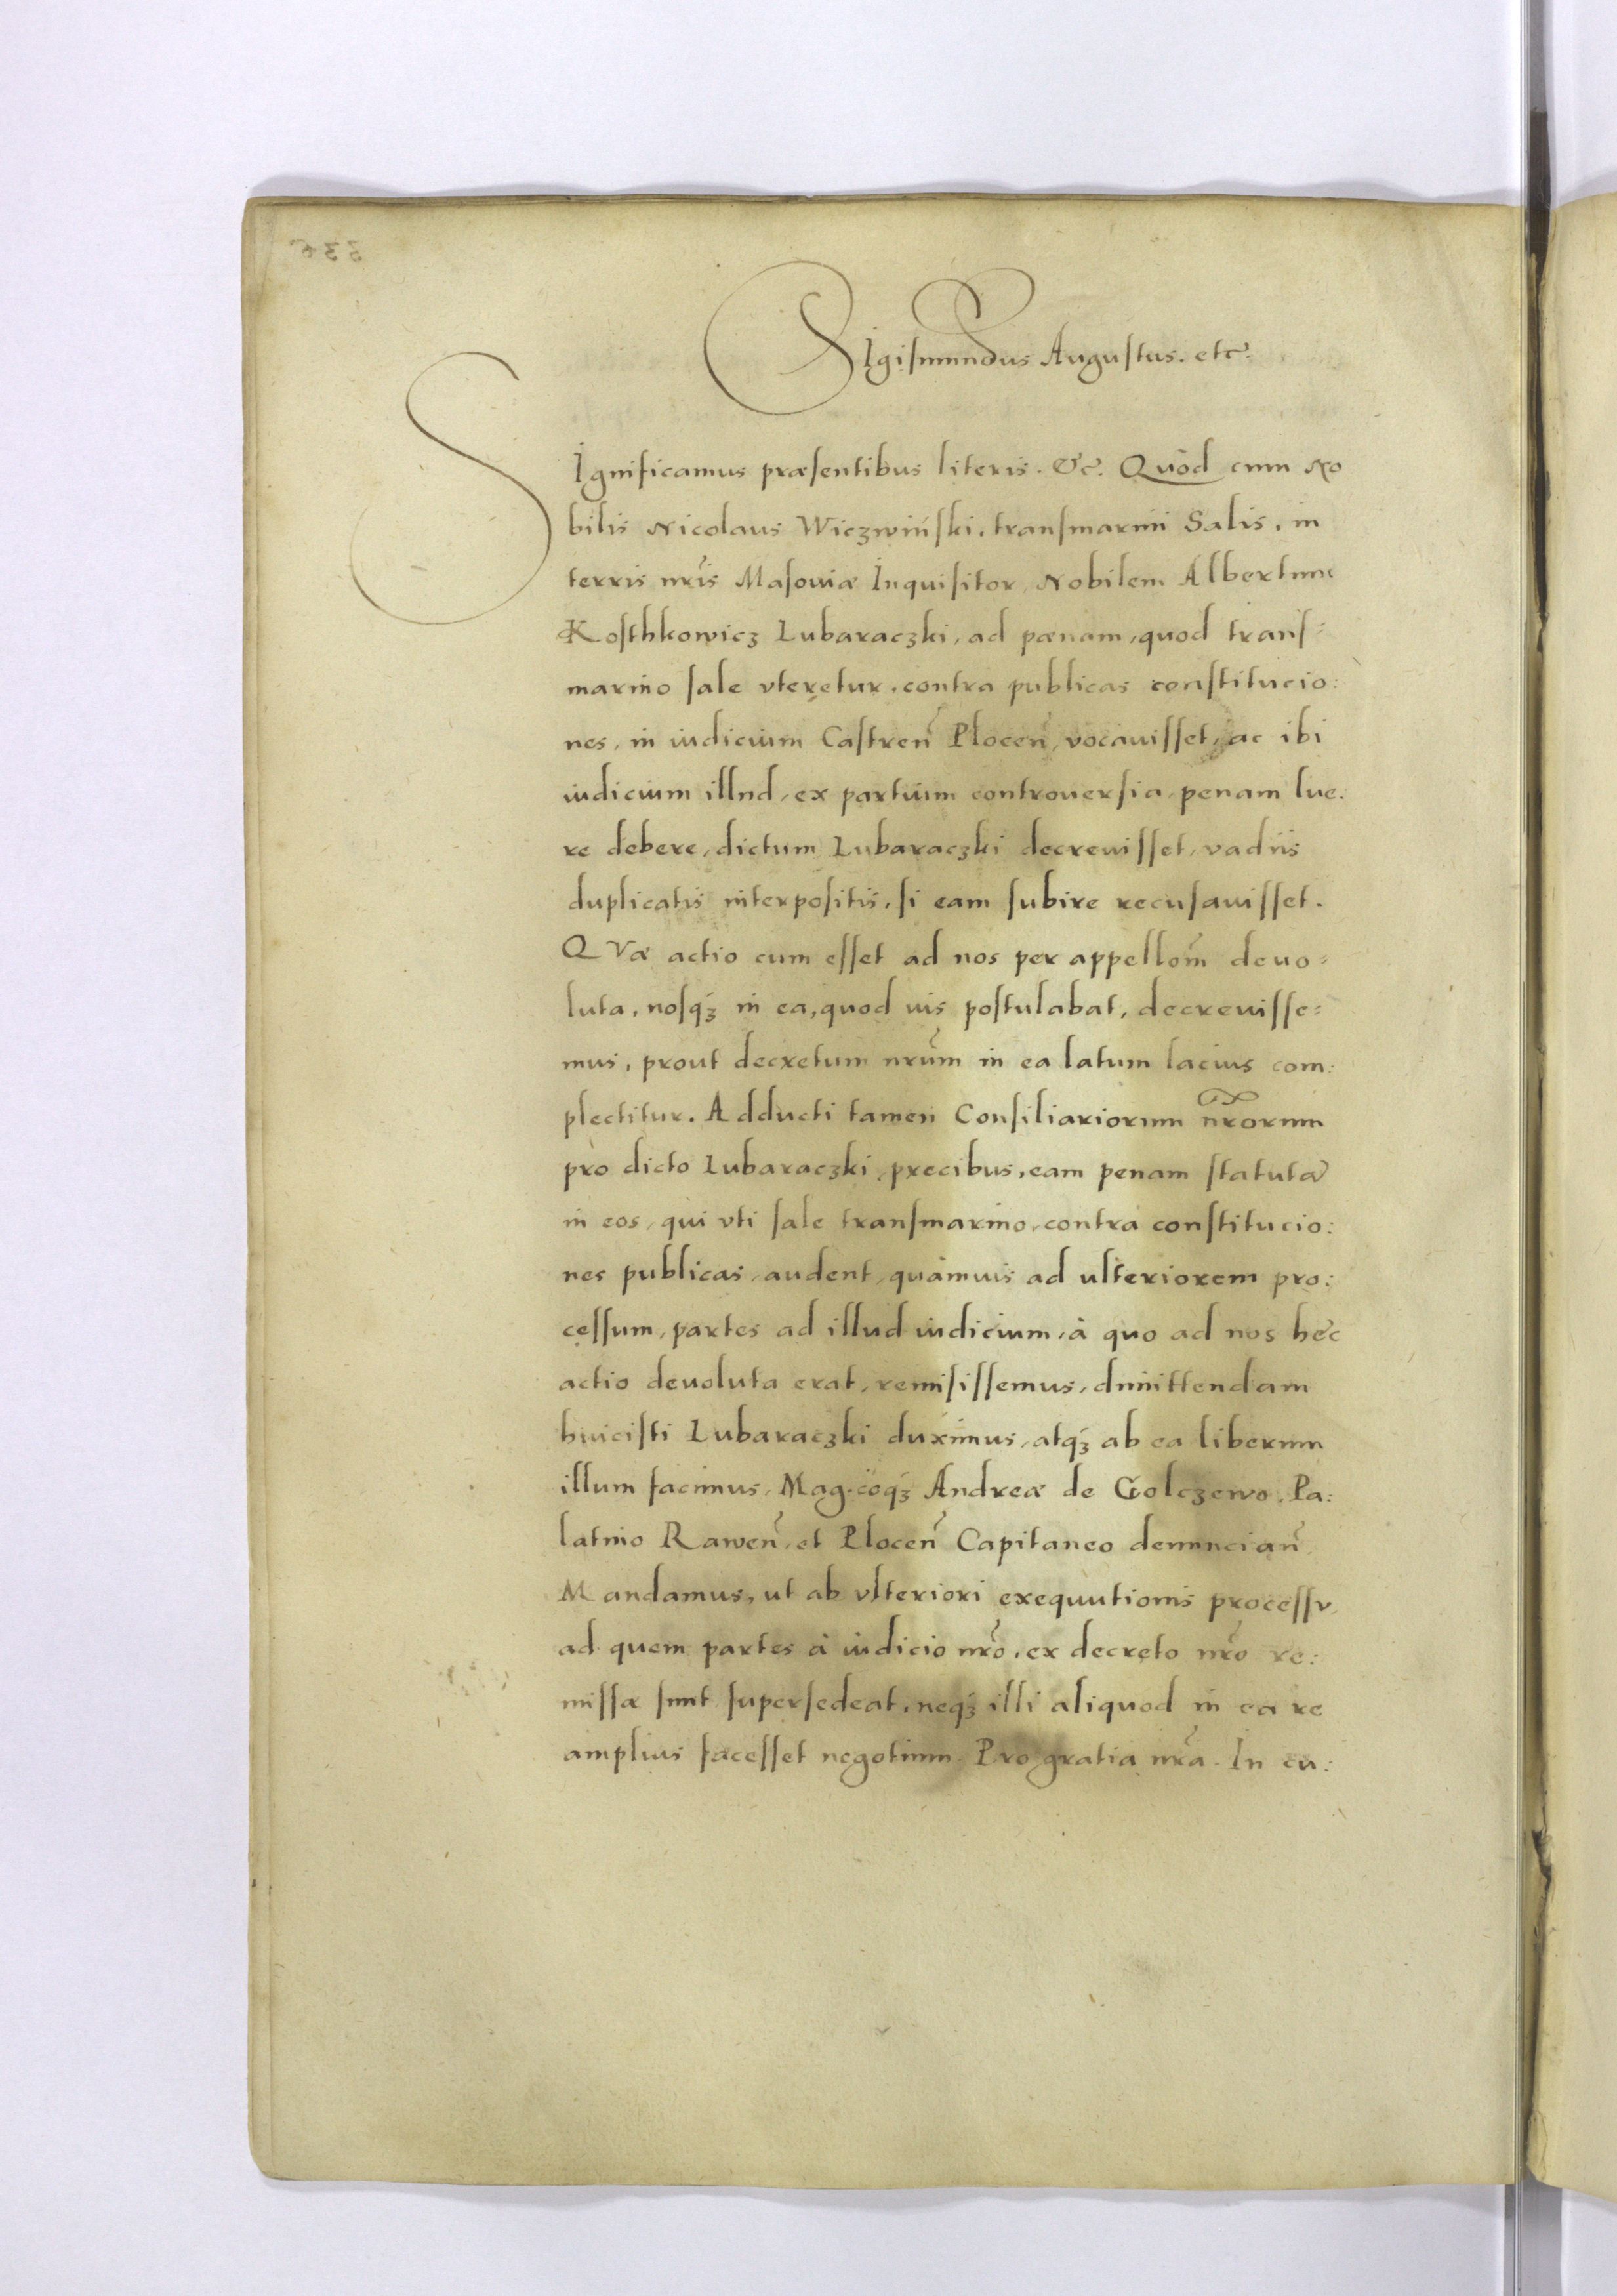 Sigismundus Augustus. etc.
Significamus præsentibus literis. &c. Quòd cum No
bilis Nicolaus Wiczwiński, transmarini Salis, in
terris nr̃is Masouiæ Inquisitor, Nobilem Albertum
Kosthkowicz Lubaraczki, ad pænam, quod trans⸗
marino sale vteretur, contra publicas constitucio:
nes, in iudicium Castren̄ Plocen̄, vocauisset, ac ibi
iudicium illud, ex partium controuersia, penam lue:
re debere, dictum Lubaraczki decreuisset, vadiis
duplicatis interpositis, si eam subire recusauisset.
QVæ actio cum esset ad nos per appellom̃ deuo⸗
luta, nosq́ꝫ in ea, quod ius postulabat, decreuisse⸗
mus, prout decretum nrũm in ea latum lacius com:
plectitur. Adducti tamen Consiliariorum nr̃orum
pro dicto Lubaraczki, precibus, eam penam statutã
in eos, qui vti sale transmarino, contra constitucio:
nes publicas, audent, quamuis ad ulteriorem pro:
cessum, partes ad illud iudicium, à quo ad nos hec
actio deuoluta erat, remisissemus, dimittendam
huicisti Lubaraczki duximus, atq́ꝫ ab ea liberum
illum facimus, Mag.coq́ꝫ Andreæ de Golczewo, Pa:
latino Rawen̄, et Plocen̄ Capitaneo denuncian̄,
Mandamus, ut ab vlteriori exequutionis processu,
ad quem partes à iudicio nr̃o, ex decreto nr̃o re:
missæ sunt supersedeat, neq́ꝫ illi aliquod in ea re
amplius facesset negotium. Pro gratia nr̃a. In cu: